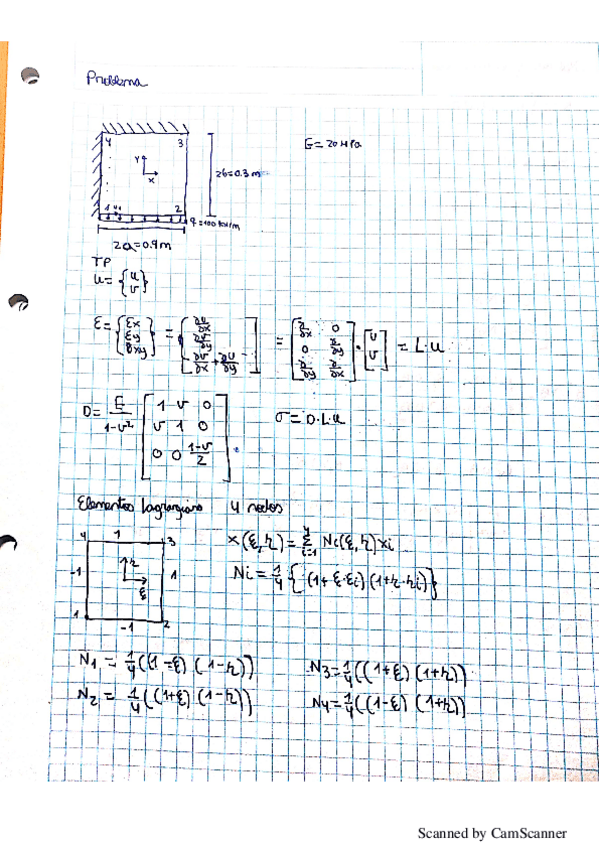 Problema
4 3
Y
X
1 2
E=20 MPa
2b=0.3m
q=100 kN/m
2a=0.9m
TP
u={u v}
ε={εx εy γxy} = {∂u/∂x ∂v/∂y ∂v/∂x+∂u/∂y} = [∂/∂x 0 0 ∂/∂y ∂/∂y ∂/∂x] · [u v] = L·u
D= E/1-ν² [1 ν 0 ν 1 0 0 0 1-ν/2] σ=D·L·u
Elementos lagrangiano 4 nodos
4 1 3
-1 η 1
ξ
1 -1 2
x(ξ,η)= Σ Ni(ξ,η)xi
Ni=1/4 { (1+ξ·ξi)(1+η·ηi)}
N1 = 1/4((1-ξ)(1-η)) N3=1/4((1+ξ)(1+η))
N2 = 1/4((1+ξ)(1-η)) N4=1/4((1-ξ)(1+η))
Scanned by CamScanner